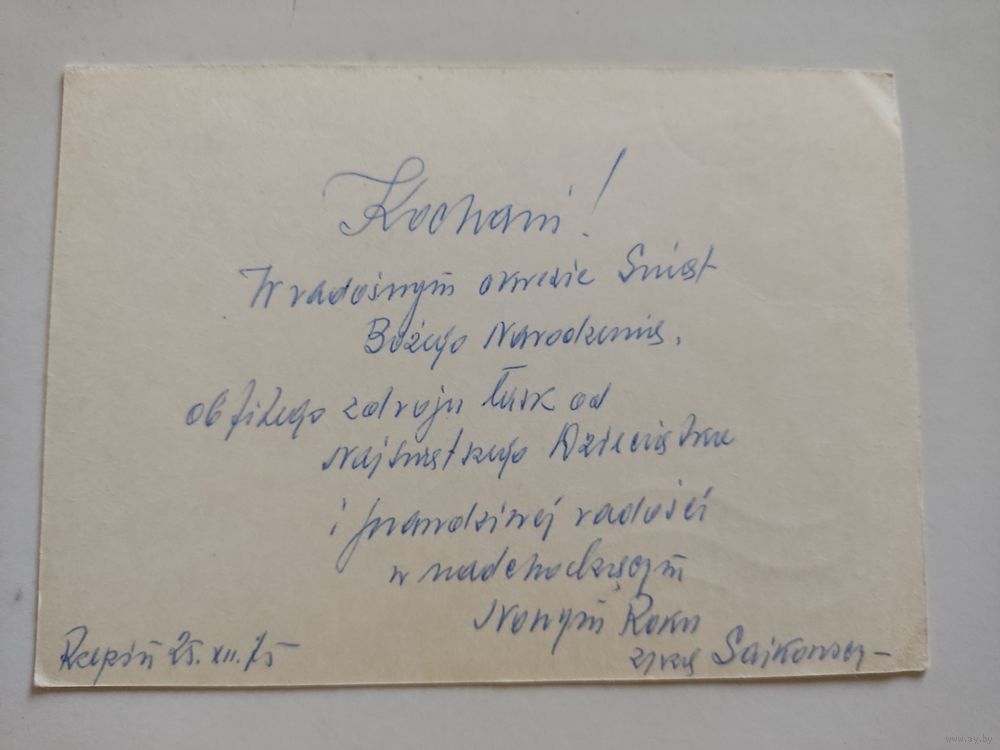 Kochani!
W radosnym okresie Świąt
Bożego Narodzenia,
obfitego zdroju łask od
Najświętszego Dzieciątka
i prawdziwej radości
w nadchodzącym
Nowym Roku
życzą
Rzepin 25.XII.75
www.ay.by